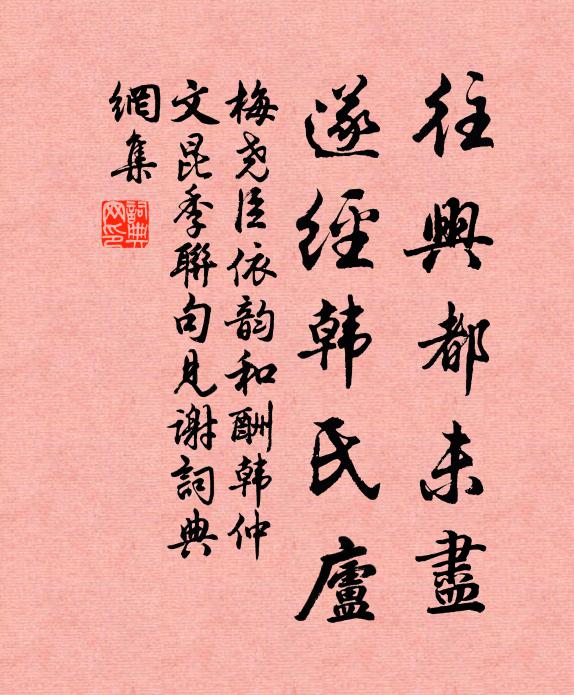 往興都未盡
遂經韩氏廬
梅尧臣依韵和酬韩仲
文昆季聯句見谢詞典
網集
詞典網印